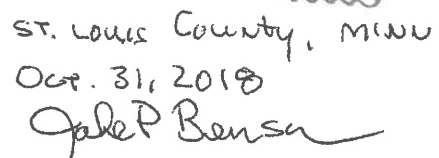 ST. LOUIS COUNTY, MINN
OCT. 31, 2018
Jake P Benson